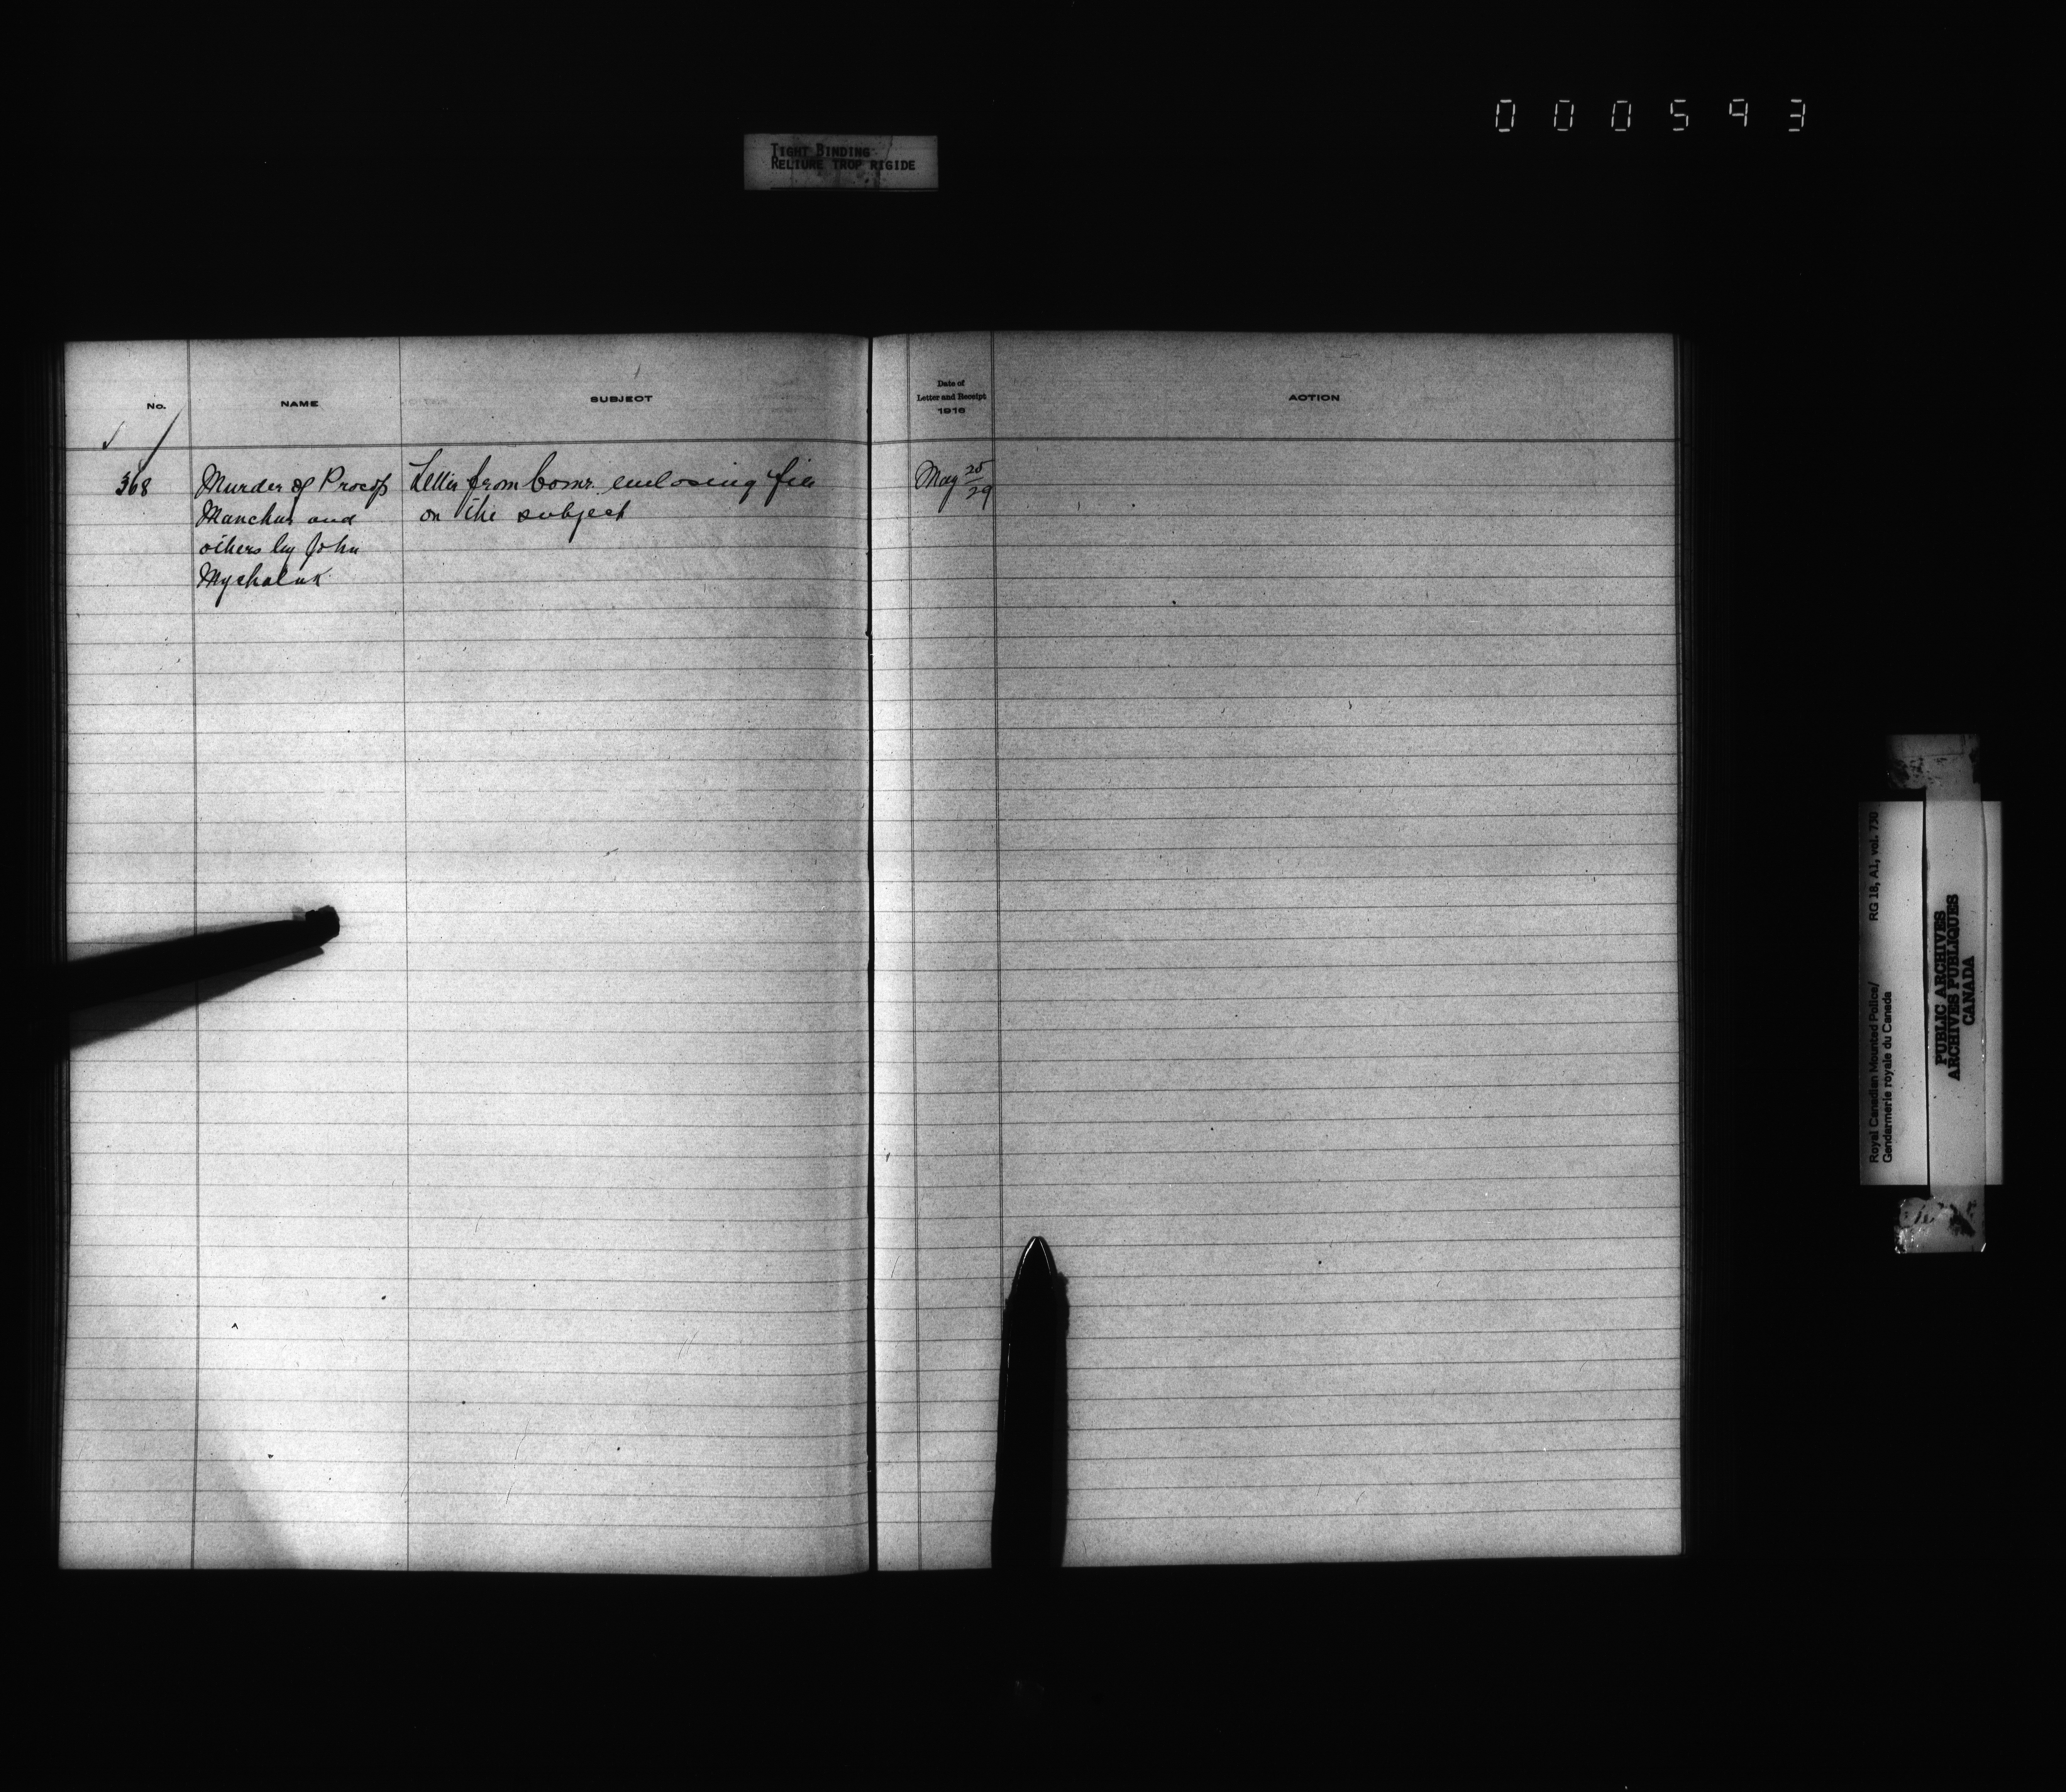 000593
TIGHT BINDING
RELIURE TROP RIGIDE
No.
NAME
SUBJECT
Date of
Letter and Receipt
1916
ACTION
368
Murder of Procop
Manchur and
others by John
Mychaluk
Letter from Comr. enclosing file
on the subject
May 25/29
Royal Canadian Mounted Police/ RG 18, A1, vol. 730
Gendarmerie royale du Canada
PUBLIC ARCHIVES
ARCHIVES PUBLIQUES
CANADA